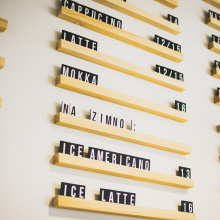 CAPPUCINO 14
LATTE 12/15
MOKKA 12/15
NA ZIMNO: 16
ICE AMERICANO 13
ICE LATTE 16